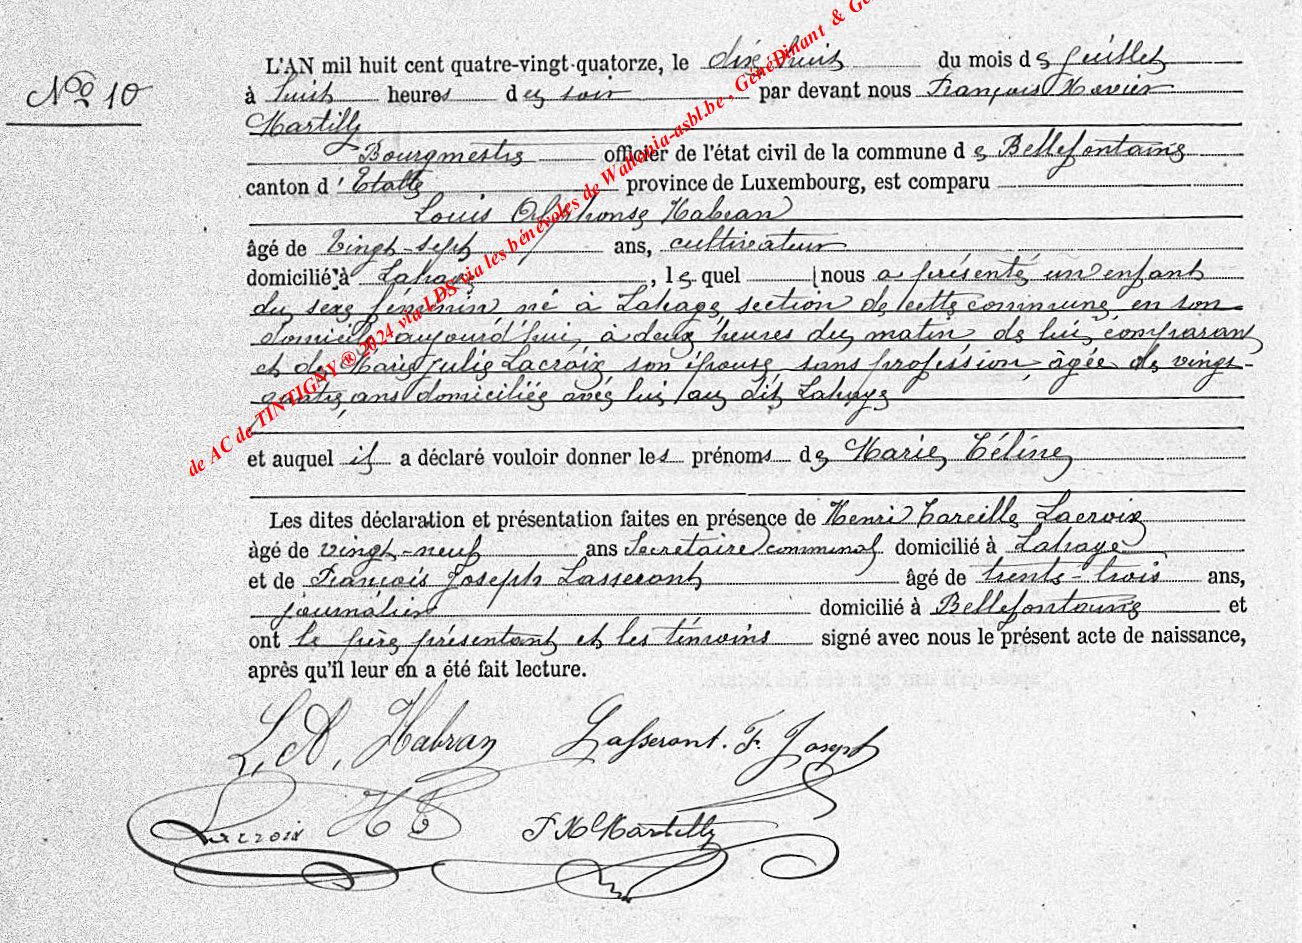 L'AN mil huit cent quatre-vingt-quatorze, le dix huit du mois de Juillet
No 10
à huit heures du soir par devant nous François Xavier
Martilly
Bourgmestre officier de l'état civil de la commune de Bellefontaine
canton d'Etalle province de Luxembourg, est comparu
Louis Alphonse Habran
âgé de Vingt-sept ans, cultivateur
domicilié à Lahage, lequel nous a présenté un enfant
du sexe féminin né à Lahage, section de cette commune, en son
domicile, aujourd'hui, à deux heures du matin, de lui comparant
et de Marie Julie Lacroix son épouse, sans profession, âgée de vingt-
quatre, ans domiciliée avec lui au dit Lahage
et auquel il a déclaré vouloir donner les prénoms de Marie Céline
Les dites déclaration et présentation faites en présence de Henri Lacroix
âgé de vingt-neuf ans Secrétaire communal domicilié à Lahage
et de François Joseph Lasseront âgé de trente-trois ans,
journalier domicilié à Bellefontaine et
ont le père présentant et les témoins signé avec nous le présent acte de naissance,
après qu'il leur en a été fait lecture.
L. A. Habran Lasseront. F. Joseph
Lacroix H C F X Martilly
de AC de TINTIGNY ® 2024 via LDS via les bénévoles de Wallonia-asbl.be, GénéDinant &